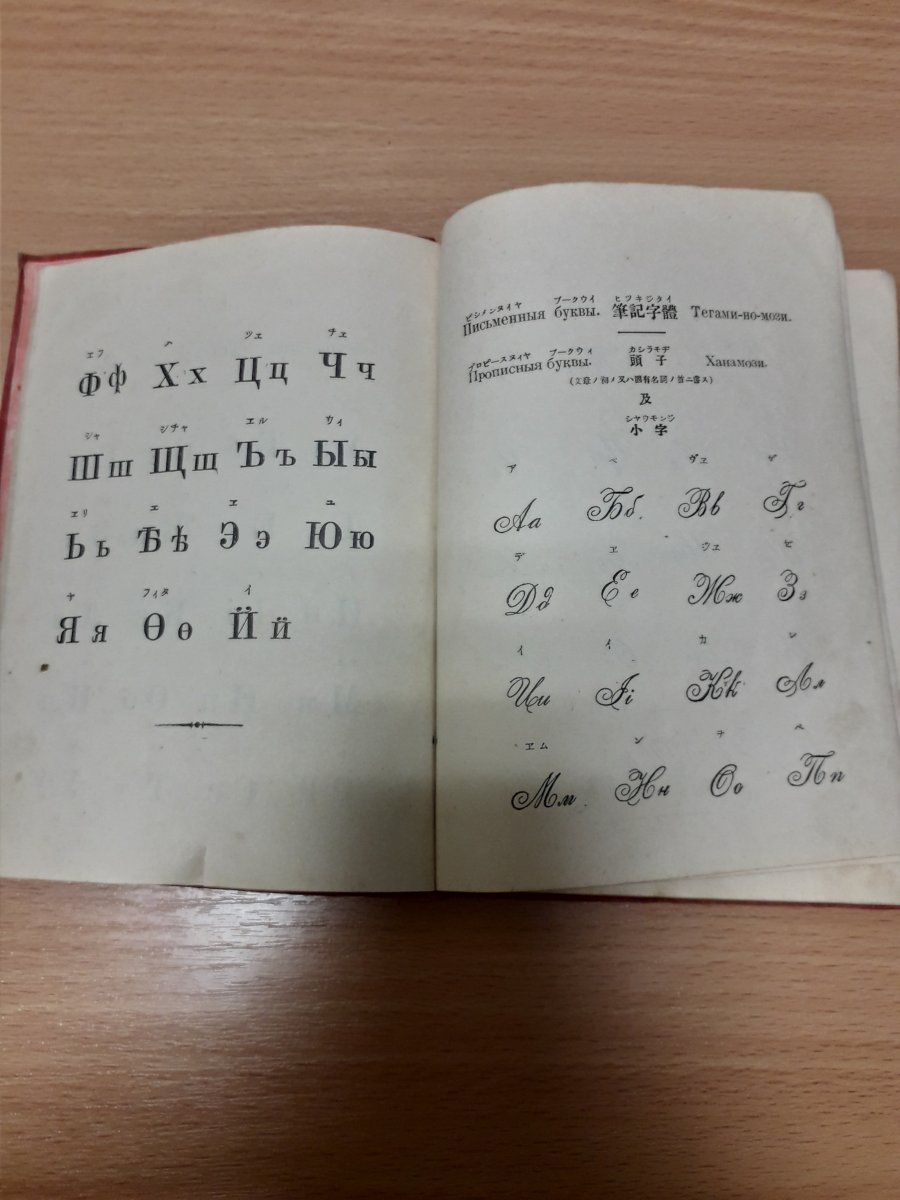 エフ ハ ツェ チェ
Фф Хх Цц Чч
シャ シチャ エル ウィ
Шш Щщ Ъъ Ыы
エリ エ エ ユ
Ьь Ѣѣ Ээ Юю
ヤ フィタ イ
Яя Ѳѳ Йй
ピシメンヌイヤ ブークウイ ヒツキジタイ
Письменныя буквы. 筆記字體 Тегами-но-мози.
プロピースヌイヤ ブークウィ カシラモヂ
Прописныя буквы. 頭子 Ханамози.
(文章ノ初ノ又ハ固有名詞ノ首ニ書ス)
及
シヤウモンジ
小字
ア ベ ヴエ ゲ
Аа Бб Вв Гг
デ エ ウエ ゼ
Дд Ее Жж Зз
イ イ カ レ
Ии Іі Кк Лл
エム ン オ ペ
Мм Нн Оо Пп